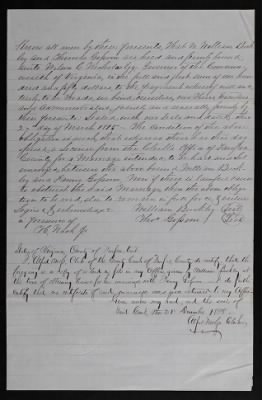 Know all men by these presents, That we William Bink
ly and Thomas Gossom are held and firmly bound
unto Wilson C. Nicholas Esq. Governor of the Common-
wealth of Virginia, in the full and just sum of one hun
dred and fifty dollars to the payment whereof well and
truly to be made, we bind ourselves, our Heirs, Executors
and Administrators, jointly and severally firmly by
these presents. Sealed with our seals and dated this
27th day of March 1815. The Condition of the above
obligation is such, that whereas there has this day
issued a License from the Clerk's Office of Fairfax
County for a Marriage intended to be had and sol
emnized between the above bound William Bink
ly and Nancy Gossom. Now if there is lawful cause
to obstruct the said Marriage, then the above obliga
tion to be void, else to remain in full force &c
Signed & acknowledged William Binkly
in presence of Thos Gossom
State of Virginia, County of Fairfax to wit
Clerk of the County Court of Fairfax County do certify that the
foregoing is a copy of a bond on file in my office given by William Binkly at
the time of obtaining license for his marriage with Nancy Gossom. I do further
certify that no certificate of said marriage was given returned to my office
Given under my hand and the seal of
said Court, this 28 December 1855